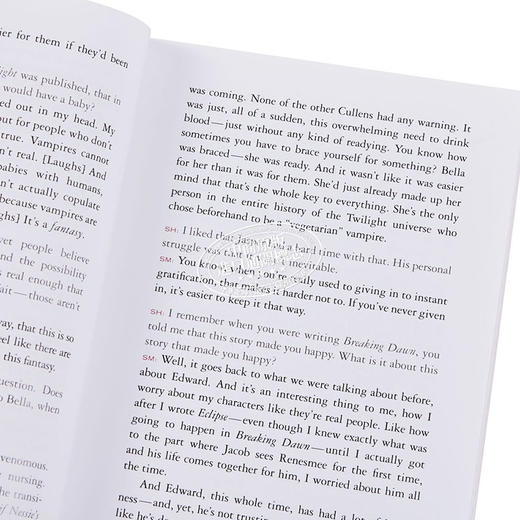 ier for them if they'd been
ight was published, that in
would have a baby?
ed out in my head. My
but for people who don't
true. Vampires cannot
n't real. [Laughs] And
babies with humans,
n't actually copulate
because vampires are
ghs] It's a fantasy.
yet people believe
and the possibility
s real enough that
fait—those aren't
way, that this is so
feel like there are
this fantasy.
uestion. Does
o Bella, when
venomous.
nursing.
the transi-
if Nessie's
was coming. None of the other Cullens had any warning. It
was just, all of a sudden, this overwhelming need to drink
blood—just without any kind of readying. You know how
sometimes you have to brace yourself for something? Bella
was braced—she was ready. And it wasn't like it was easier
for her than it was for them. She'd just already made up her
mind that that's the whole key to everything. She's the only
person in the entire history of the Twilight universe who
chose beforehand to be a "vegetarian" vampire.
SH: I liked that Jasper had a hard time with that. His personal
struggle was that it wasn't inevitable.
SM: You know, when you're really used to giving in to instant
gratification, that makes it harder not to. If you've never given
in, it's easier to keep it that way.
SH: I remember when you were writing Breaking Dawn, you
told me that this story made you happy. What is it about this
story that made you happy?
SM: Well, it goes back to what we were talking about before,
about Edward. And it's an interesting thing to me, how I
worry about my characters like they're real people. Like how
after I wrote Eclipse—even though I knew exactly what was
going to happen in Breaking Dawn—until I actually got
to the part where Jacob sees Renesmee for the first time,
and his life comes together for him, I worried about him all
the time.
And Edward, this whole time, has had a lot of
ness—and, yet, he's not trusting
like he's do